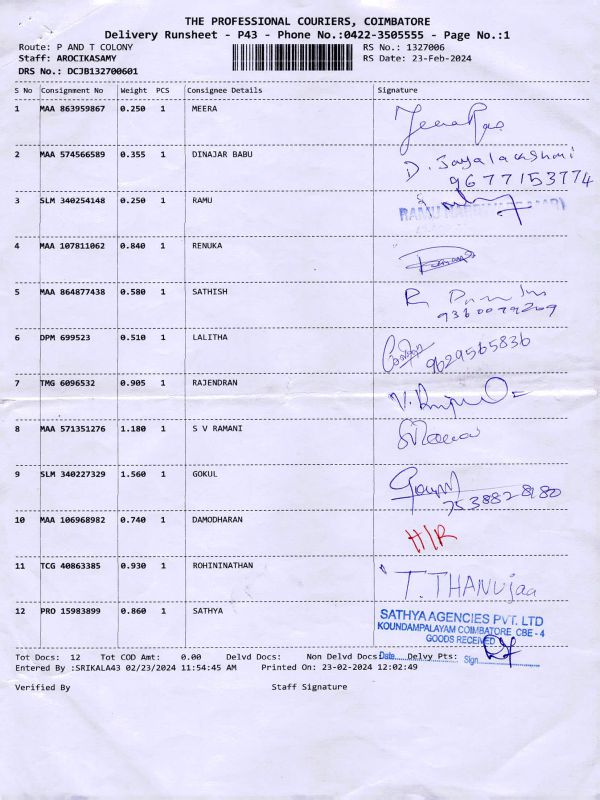 THE PROFESSIONAL COURIERS, COIMBATORE
Delivery Runsheet - P43 - Phone No.:0422-3505555 - Page No.:1
Route: P AND T COLONY RS No.: 1327006
Staff: AROCIKASAMY RS Date: 23-Feb-2024
DRS No.: DCJB132700601
S No Consignment No Weight PCS Consignee Details Signature
1 MAA 863959867 0.250 1 MEERA
2 MAA 574566589 0.355 1 DINAJAR BABU D. Jayalakshmi
9677153774
3 SLM 340254148 0.250 1 RAMU
4 MAA 107811062 0.840 1 RENUKA
5 MAA 864877438 0.580 1 SATHISH
9360079209
6 DPM 699523 0.510 1 LALITHA 9629565836
7 TMG 6096532 0.905 1 RAJENDRAN
8 MAA 571351276 1.180 1 S V RAMANI
9 SLM 340227329 1.560 1 GOKUL
7538828180
10 MAA 106968982 0.740 1 DAMODHARAN H/R
11 TCG 40863385 0.930 1 ROHININATHAN T. THANUjaa
12 PRO 15983899 0.860 1 SATHYA SATHYA AGENCIES PVT. LTD
KOUNDAMPALAYAM COIMBATORE CBE - 4
GOODS RECEIVED
Date Sign
Tot Docs: 12 Tot COD Amt: 0.00 Delvd Docs: Non Delvd Docs: Delvy Pts:
Entered By :SRIKALA43 02/23/2024 11:54:45 AM Printed On: 23-02-2024 12:02:49
Verified By Staff Signature